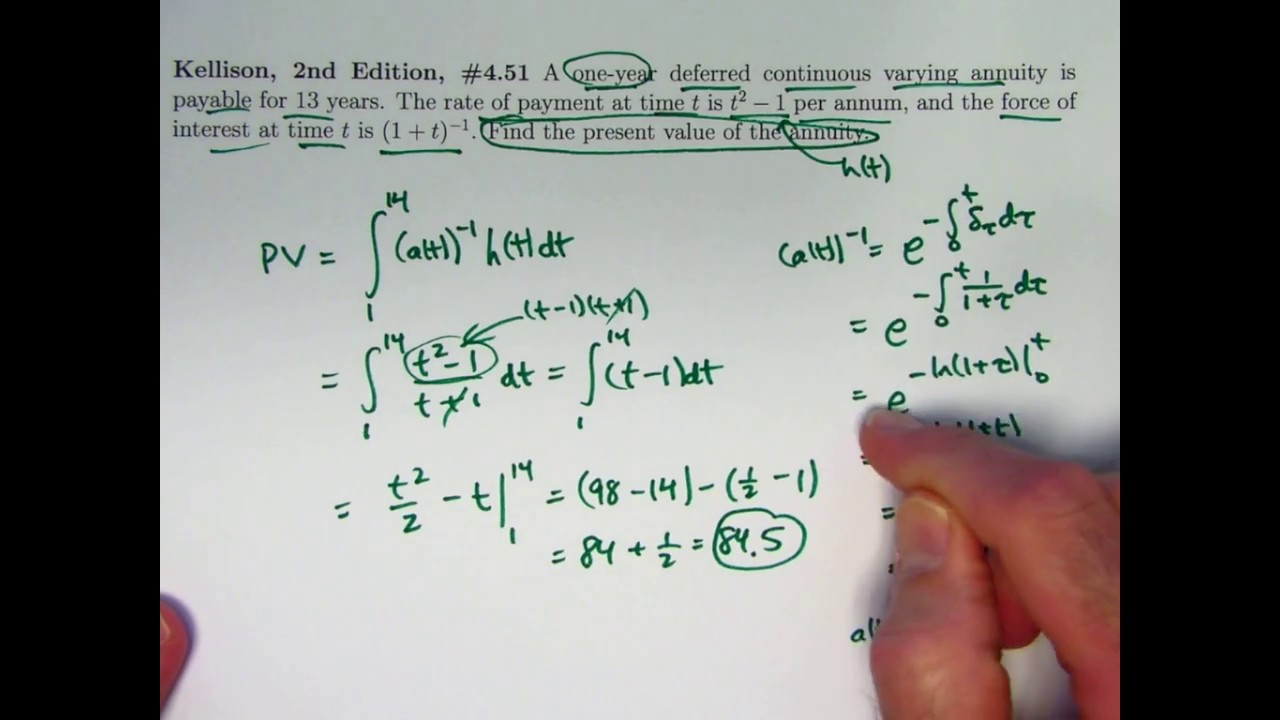 Kellison, 2nd Edition, #4.51 A one-year deferred continuous varying annuity is
payable for 13 years. The rate of payment at time t is t² − 1 per annum, and the force of
interest at time t is (1 + t)⁻¹. Find the present value of the annuity.
h(t)
PV = ∫₁¹⁴ (a(t))⁻¹ h(t) dt
(t−1)(t+1)
= ∫₁¹⁴ (t²−1)/(t+1) dt = ∫₁¹⁴ (t−1) dt
= t²/2 − t |₁¹⁴ = (98−14) − (½ − 1)
= 84 + ½ = 84.5
(a(t))⁻¹ = e^(−∫₀ᵗ δ_τ dτ)
= e^(−∫₀ᵗ 1/(1+τ) dτ)
= e^(−ln(1+τ)|₀ᵗ)
=
=